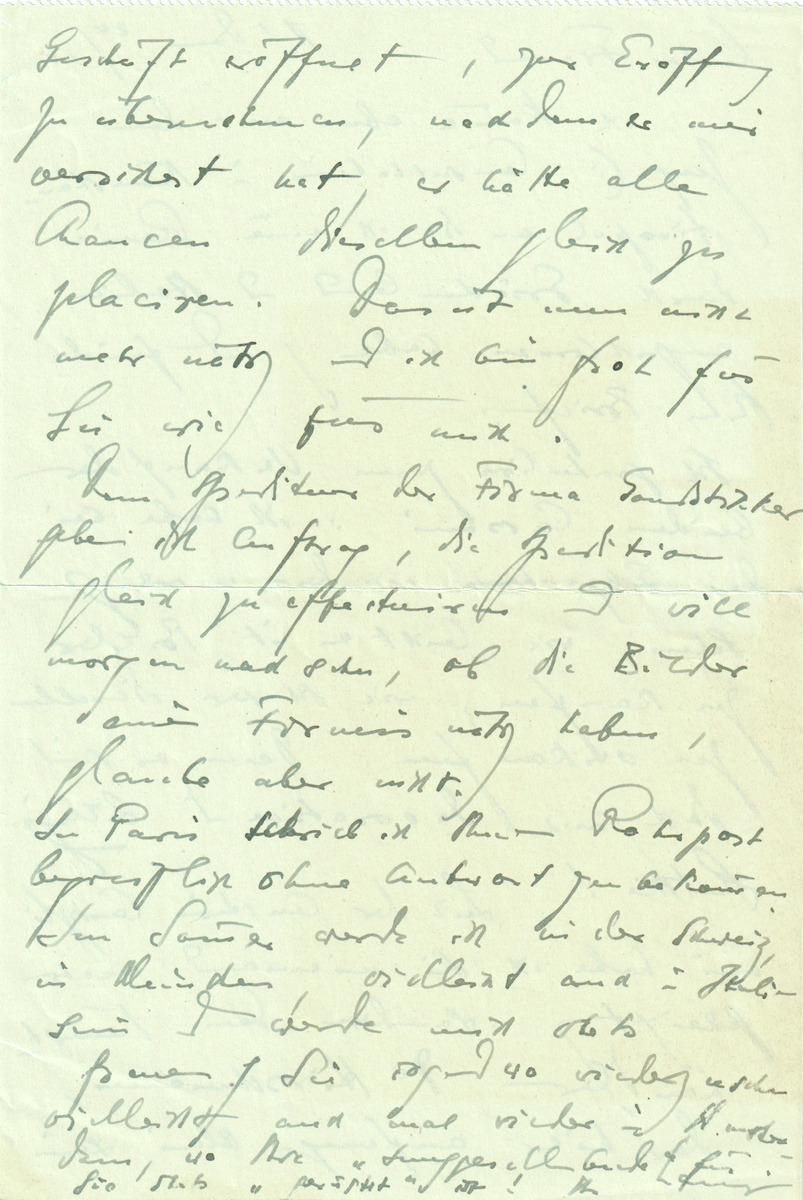 Geschäft eröffnet, zur Eröffng
zu übernehmen, nachdem er mir
versichert hat, er hätte alle
Chancen dieselben gleich zu
placiren. Das ist nun nicht
mehr nötig und ich bin froh für
Sie wie für mich.
Dem Spediteur der Firma Goudstikker
geben ich Auftrag, die Spedition
gleich zu effectuiren und will
morgen nachsehn, ob die Bilder
einen Firniss nötig haben,
glaube aber nicht.
In Paris schrieb ich Ihnen Rohrpost
begreiflich ohne Antwort zu bekommen
Im Sommer werde ich in der Schweiz,
in München, vielleicht auch in Italien
sein und werde mich stets
freuen Sie irgendwo wiederzusehn
vielleicht auch mal wieder in Amster
dam, wo Ihre "Junggesellenbude" für
Sie stets "gerüstet" ist! Ihr